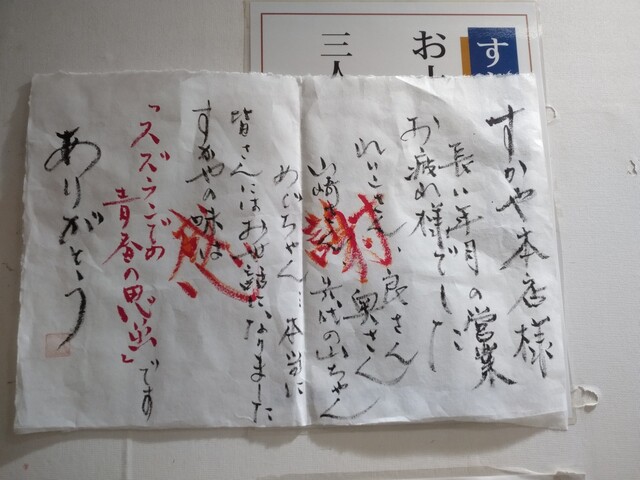 す
お
三人
すかや本店様
長い年月の営業
お疲れ様でした
れいこさん、良さん
奥さん
山崎さん 先代の山ちゃん
めぐちゃん…本当に
皆さんにはお世話になりました
すかやの味は
「スズランでの
青春の思い出」です
ありがとう
感謝